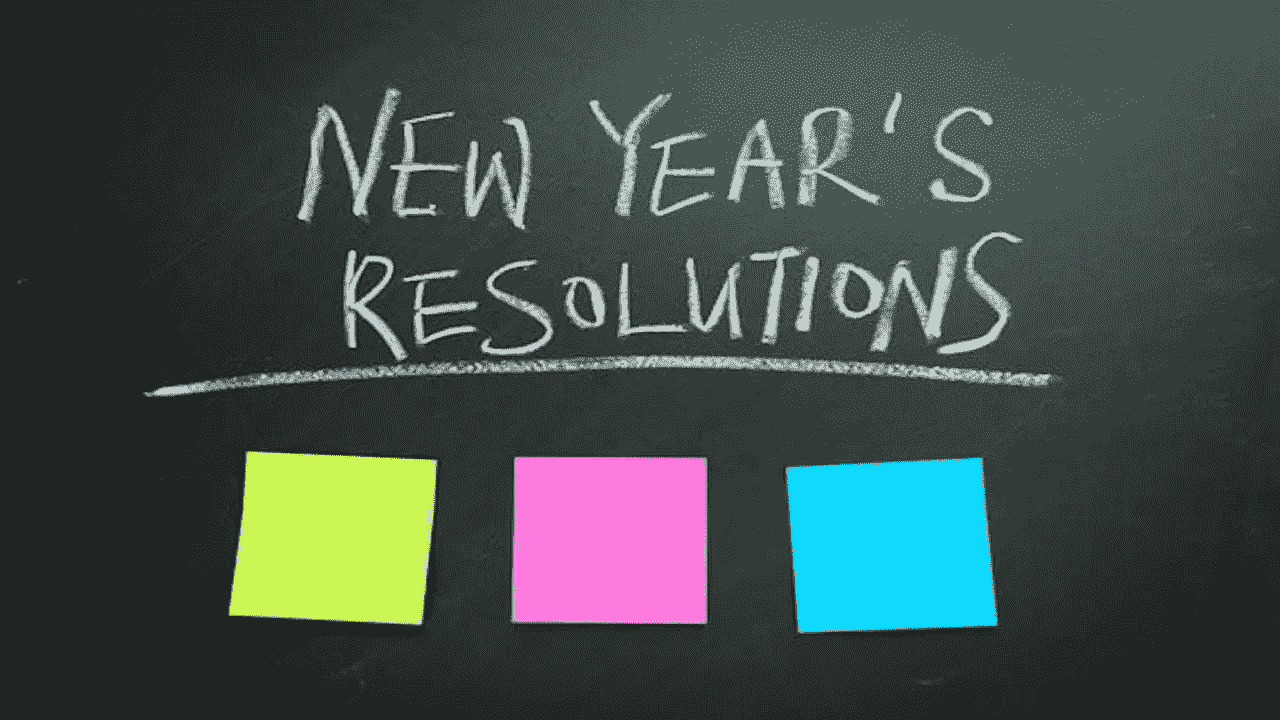 NEW YEAR'S
RESOLUTIONS